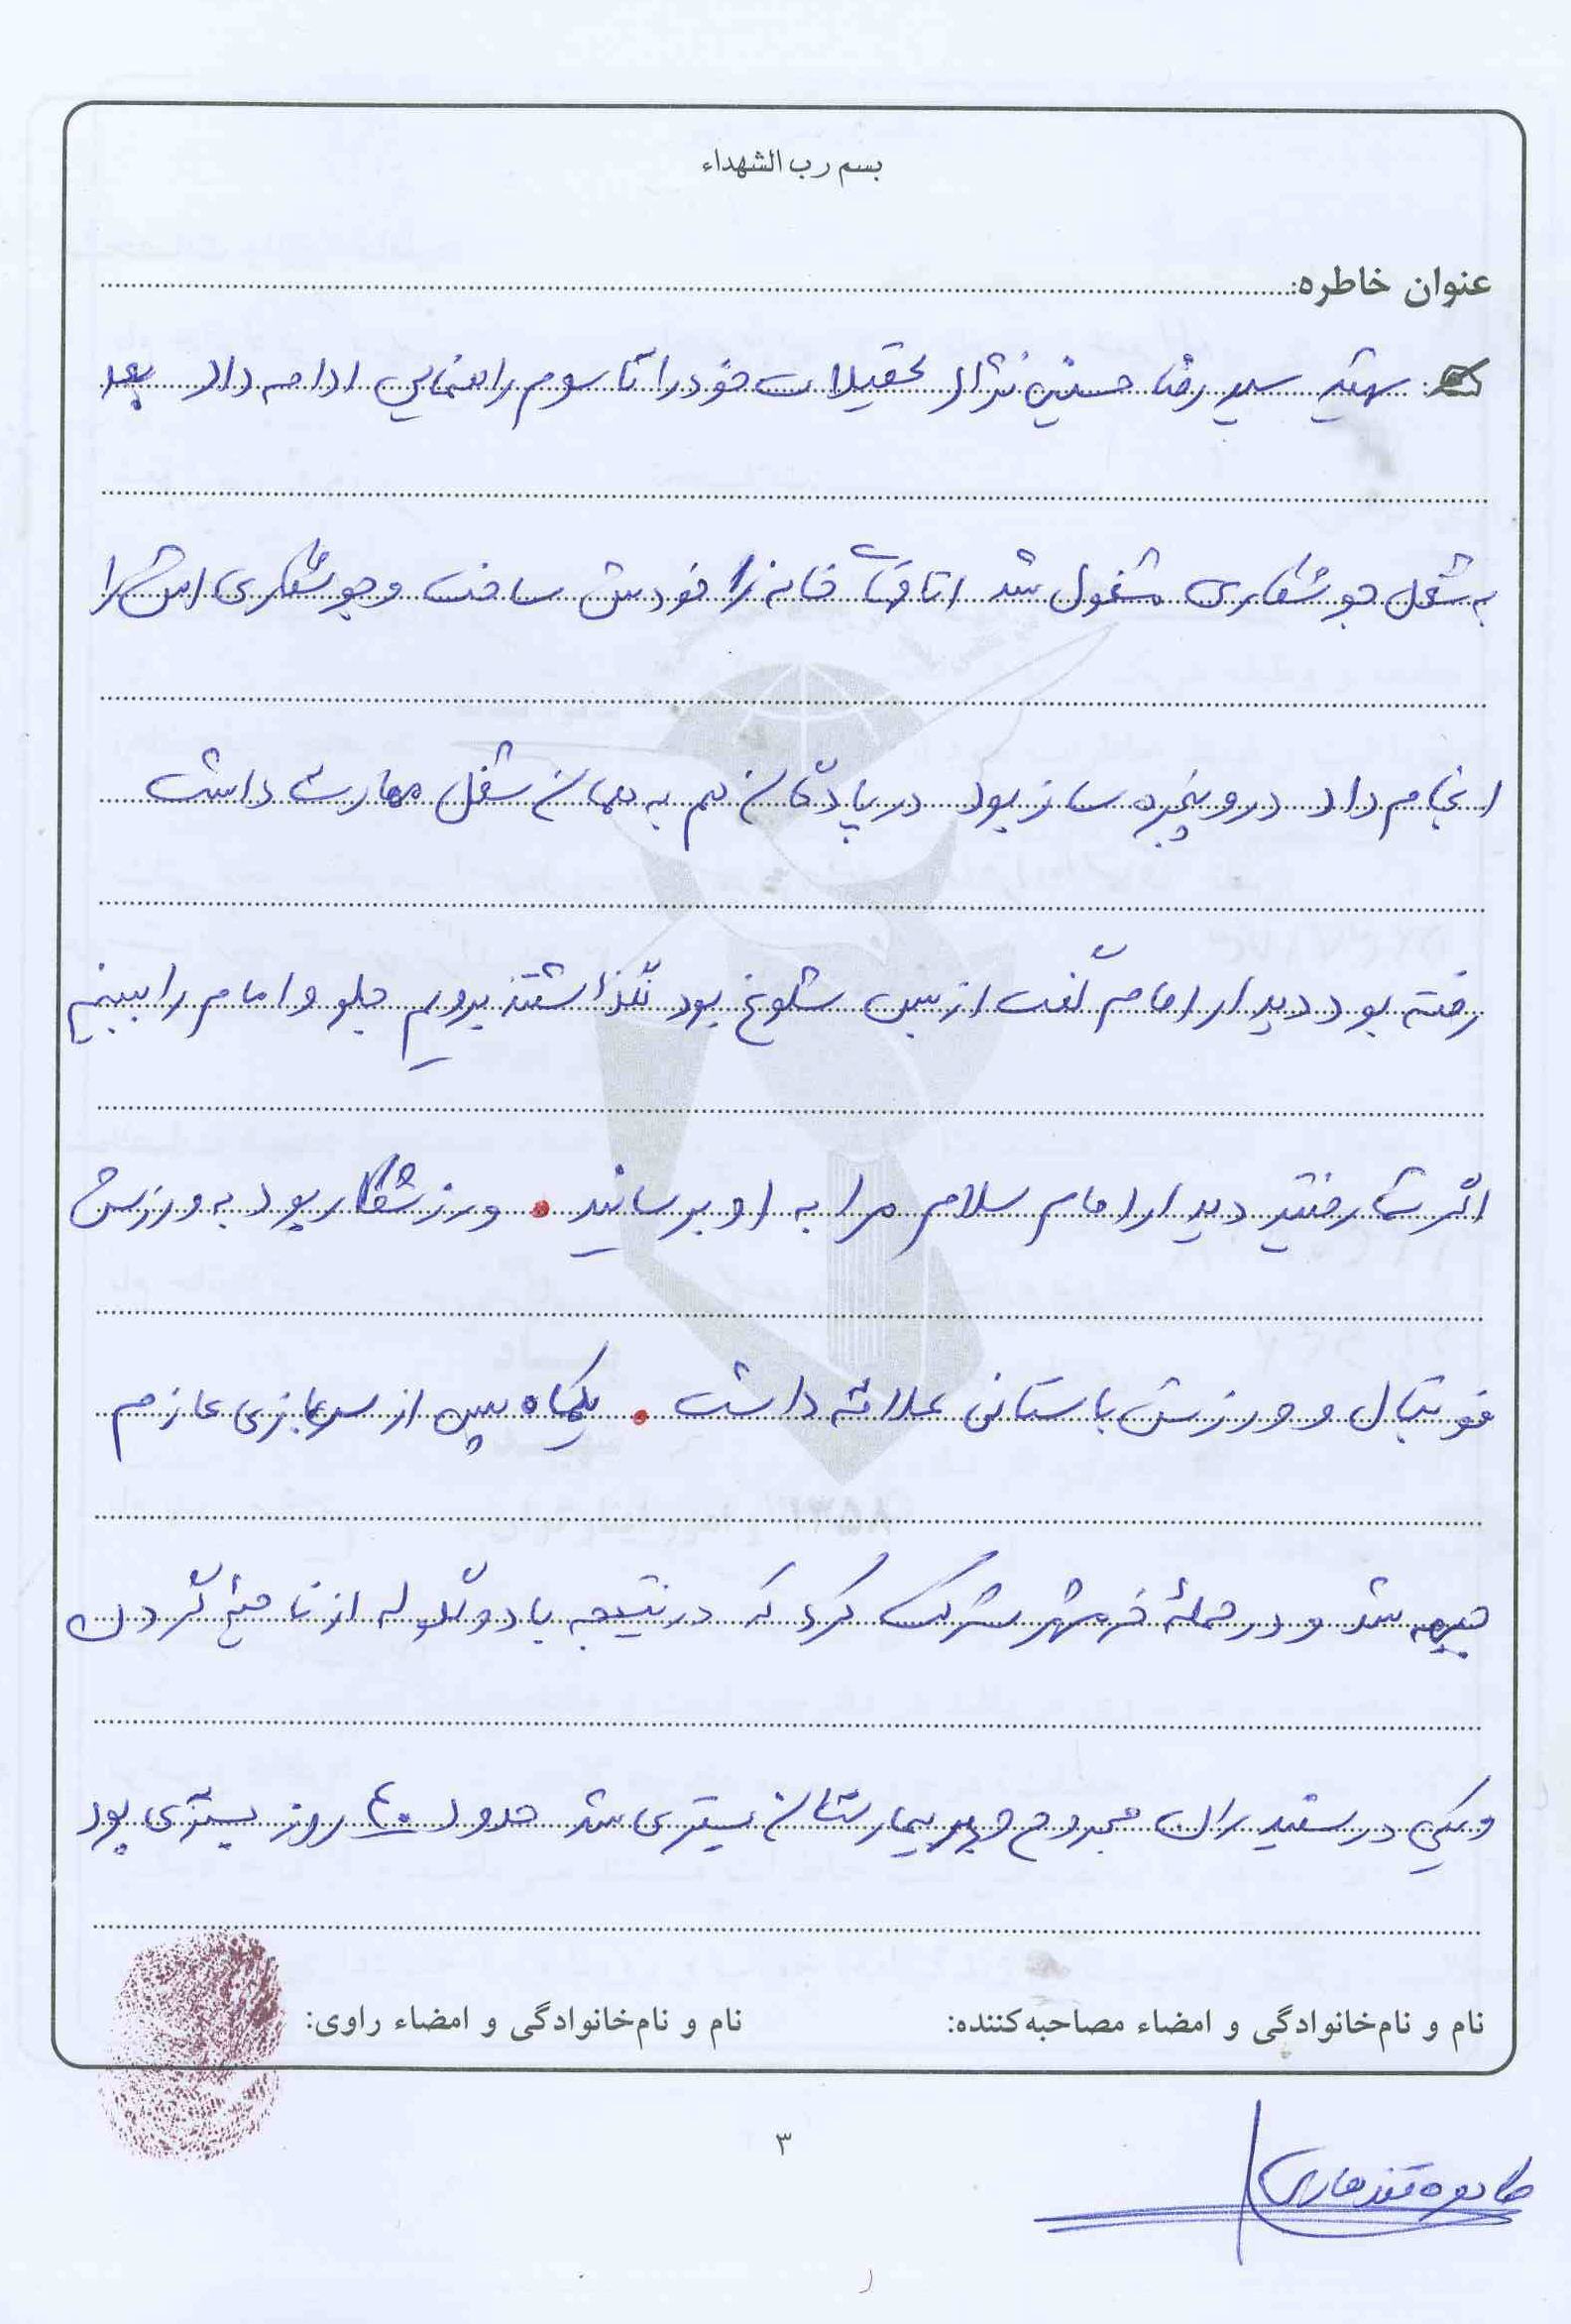 بسم رب الشهداء
عنوان خاطره:
شهید سید رضا حسینی نژاد تحصیلات خود را تا سوم راهنمایی ادامه داد بعد
به شغل جوشکاری مشغول شد اتاقهای خانه را خودش ساخت و جوشکاری اش را
انجام داد در و پنجره ساز بود در پادگان هم به همان شغل مهارت داشت
رفته بود دیدار امام گفت از بس شلوغ بود نگذاشتند برویم جلو و امام را ببینیم
اگر شما رفتید دیدار امام سلام مرا به او برسانید . ورزشکار بود به ورزش
فوتبال و ورزش باستانی علاقه داشت . یکماه پس از سربازی عازم
جبهه شد و در حملۀ خرمشهر شرکت کرد که در نتیجه با دو گلوله از ناحیۀ گردن
و یکی در سفید ران مجروح و در بیمارستان بستری شد حدود ۴۰ روز بستری بود
نام و نام‌خانوادگی و امضاء مصاحبه‌کننده:
نام و نام‌خانوادگی و امضاء راوی:
۳
طاهره قندهاری
۱۳۵۸